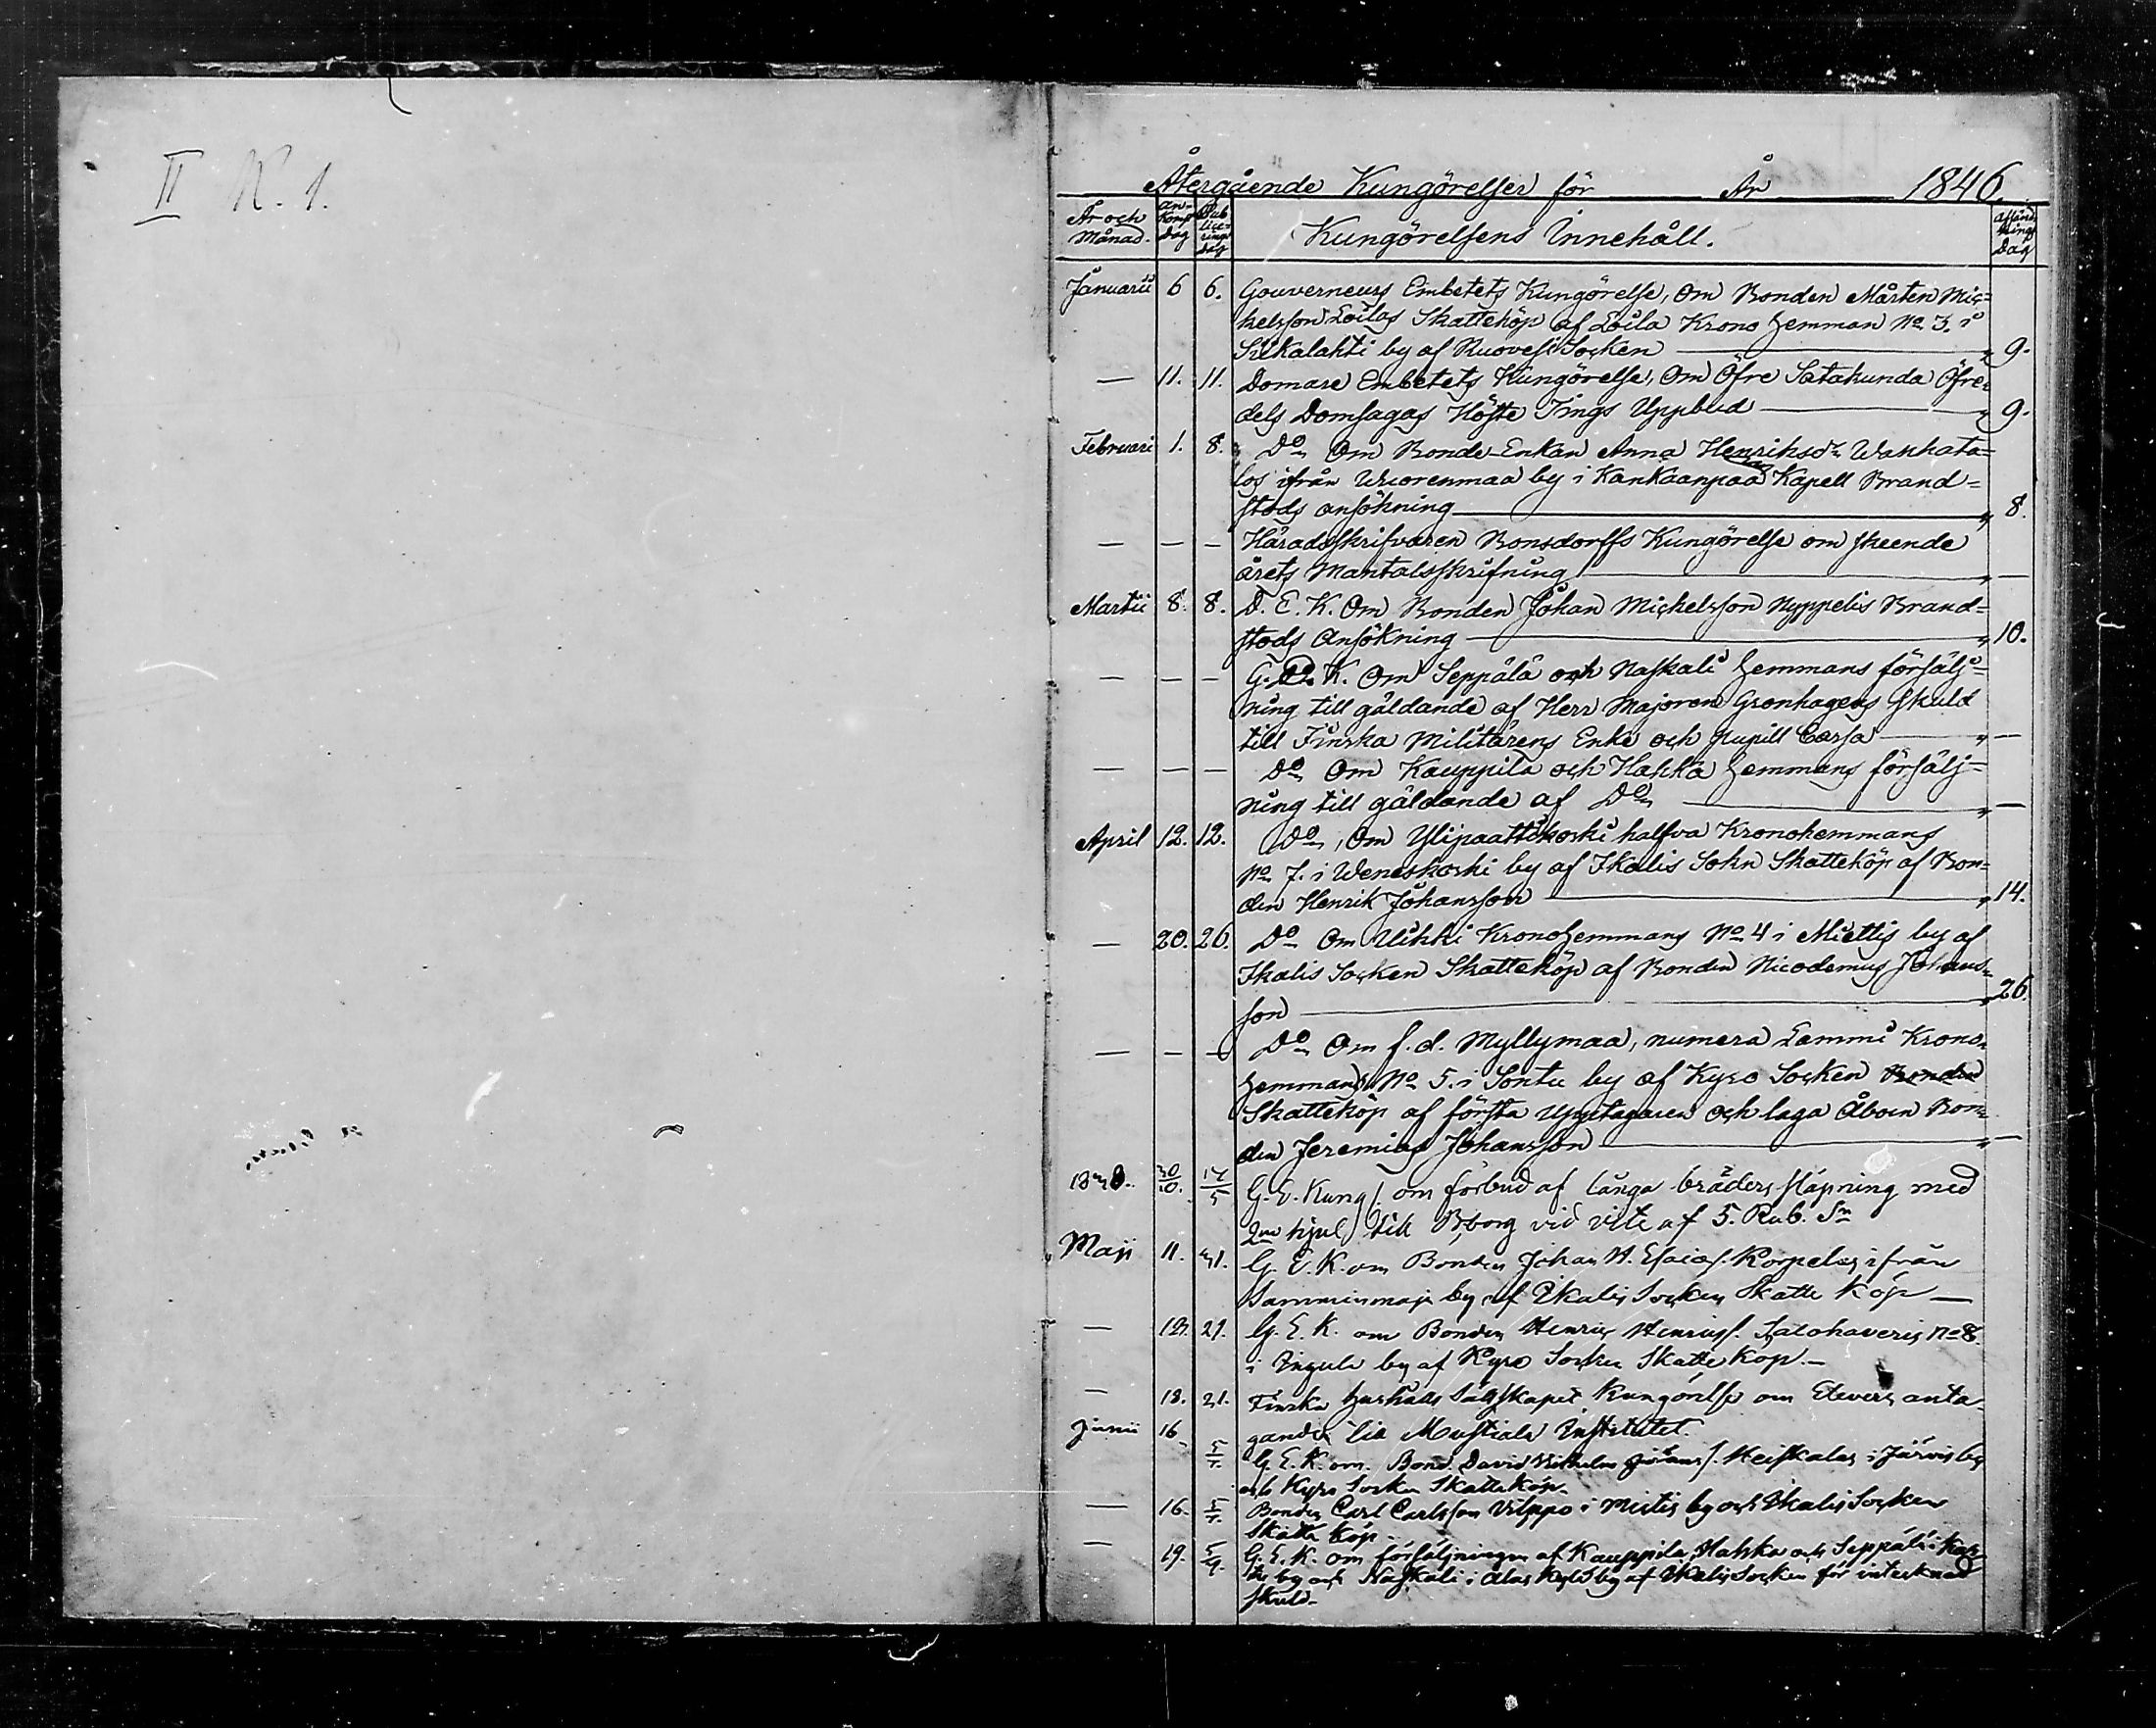 II N. 1.
Återgående Kungörelser för År 1846.
År och Månad. an-komst dag Publice-rings dag Kungörelsens Innehåll. Afsänd-nings Dag
Januarii 6 6. Gouverneurs Embetets Kungörelse, Om Bonden Mårten Mic=
helsson Loilas Skatteköp af Loila Krono Hemman No 3. i
Siikalahti by af Ruovesi Socken 9.
— 11. 11. Domare Embetets Kungörelse, Om Öfre Satakunda Öfre
dels Domsagas Höste Tings Uppbud 9.
Februari 1. 8. Do Om Bonde-Enkan Anna Henriksdr Wakkata=
los ifrån Wuorenmaa by i Kankaanpaa Kapell Brand=
stods ansökning 8.
— — — Häradsskrifvaren Bonsdorffs Kungörelse om skeende
årets Mantalsskrifning —
Martii 8. 8. D. E. K. Om Bonden Johan Michelsson Nyppelis Brand=
stods Ansökning 10.
— — — G. E. K. Om Seppälä och Naskali Hemmans försälj=
ning till gäldande af Herr Majoren Grönhagens skuld
till Finska Militärens Enke och Pupill Cassa —
— — — Do Om Kauppila och Hakka Hemmans försälj=
ning till gäldande af Do —
April 12. 12. Do, Om Ylipaattikoski halfva Kronohemmans
No 7. i Weneskoski by af Ikalis Sokn Skatteköp af Bon=
den Henrik Johansson 14.
— 20. 26. Do Om Uikki Kronohemmans No 4 i Miettis by af
Ikalis Socken Skatteköp af Bonden Nicodemus Johans=
son 26.
— — — Do Om f.d. Myllymaa, numera Lammi Krono
hemmans No 5. i Sontu by af Kyro Socken
Skatteköp af första Upptagaren och laga Åboen Bon=
den Jeremias Johansson —
G. E. Kung. om förbud af långa bräders släpning med
2ne hjul till Bborg vid vite af 5. Rub. Sr
Maji 11. 21. G. E. K. om Bonden Johan H. Esaiass. Korpelas ifrån
Samminmaja by af Ikalis Socken Skatte Köp —
— 21. G. E. K. om Bonden Henric Henricss. Salohaveris No 8.
i by af Kyro Socken Skatte köp. —
— 18. 21. Finska Hushålls Sällskapet Kungörelse om Elevers anta=
gande till Mustiala Institutet.
Junii 16. 5/7. G. E. K. om. Bond. David Wilhelm Johanss. Heiskalas i Järvis by
och Kyro Socken Skatteköp.
— 16. 5/7. Bonden Carl Carlsson Vilppo i Mietis by och Ikalis Socken
Skatte köp.
— 19. G. E. K. om försäljningen af Kauppila, Hakka och Seppälä i
by och Naskali i by af Ikalis Socken för
skuld.